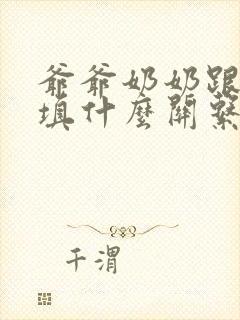 爺爺奶奶跟
填什麼關繫
千渭